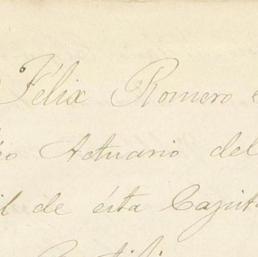 Félix Romero
Actuario del
il de ésta Capit